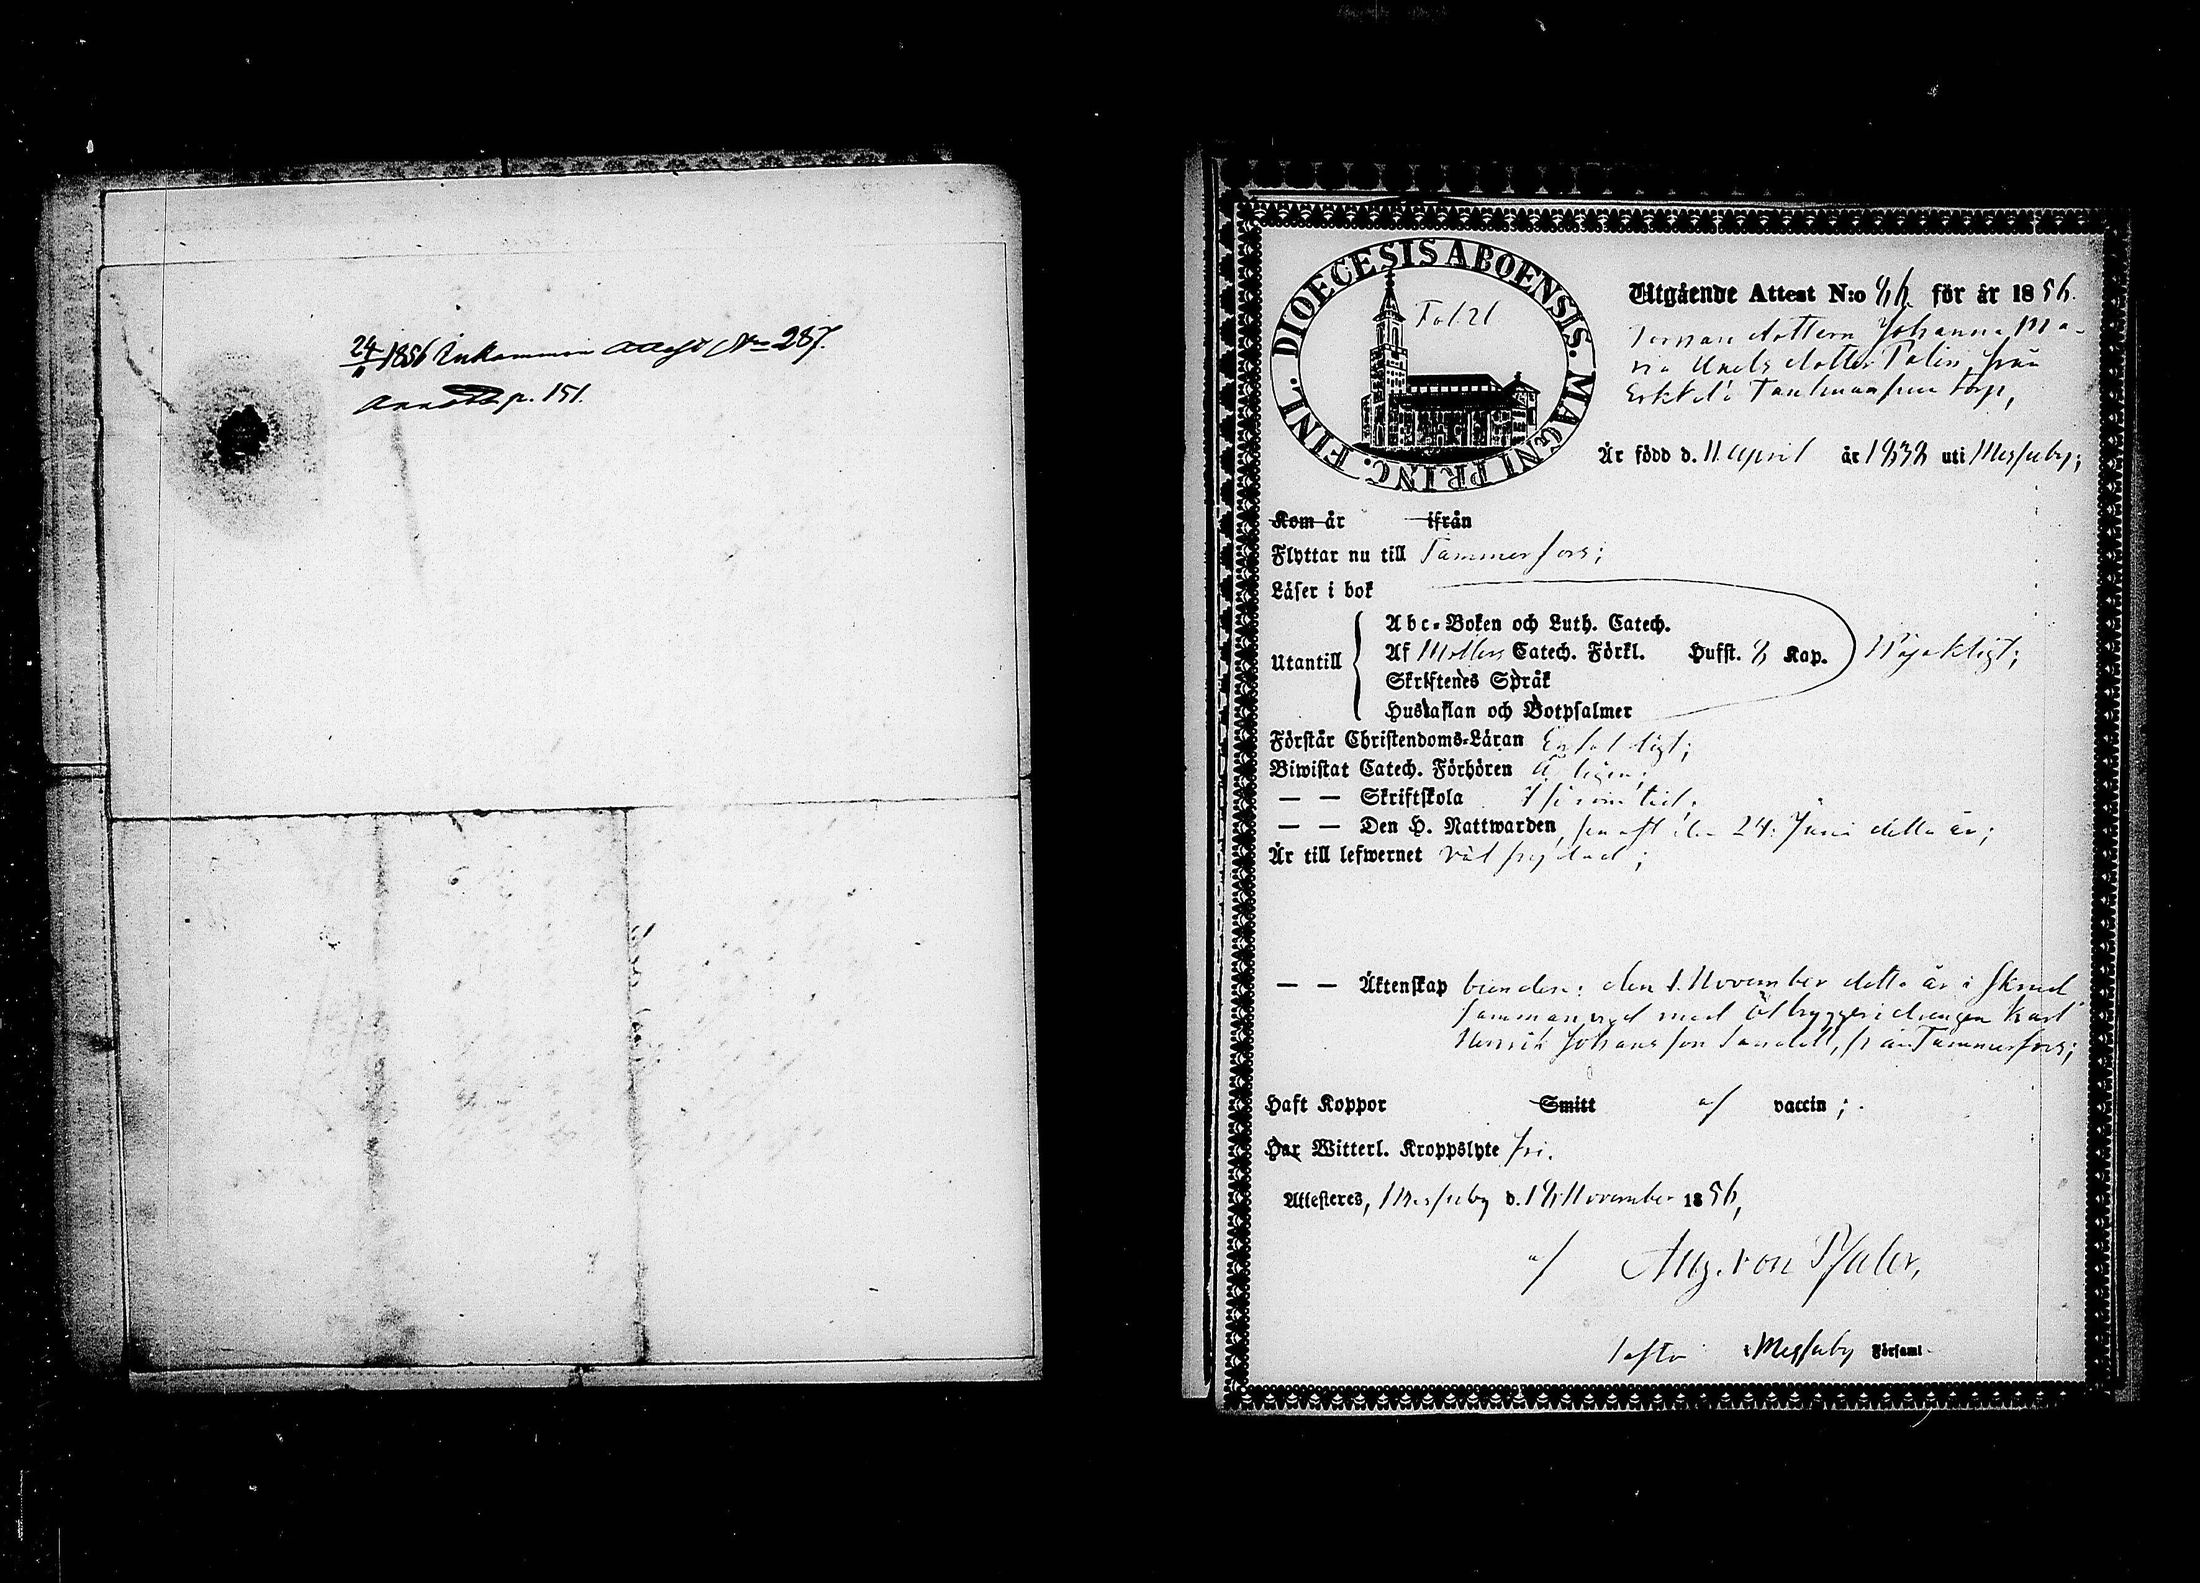 24/11 1856 Inkommen Attest No 287.
p. 151.
DIOECESIS ABOENSIS. MAGNI PRINC. FINL.
Fol. 21
Utgående Attest N:o 86 för år 1856.
dottern Johanna Ma-
ria dotter Palin, från
torp,
Är född d. 11 April år 1838 uti Messuby;
Kom år ifrån
Flyttar nu till Tammerfors;
Läser i bok
Abc-Boken och Luth. Catech.
Utantill Af Möllers Catech. Förkl. Hufst. 8 Kap. Nöjaktigt;
Skriftenes Språk
Hustaflan och Botpsalmer
Förstår Christendoms-Läran Enfaldigt;
Biwistat Catech. Förhören Årligen;
— — Skriftskola I sinom tid;
— — Den H. Nattwarden, senast den 24. Juni detta år;
Är till lefwernet väl frejdad;
— — Äktenskap bunden: den 1. November detta år i Åkrud
sammanvigd med Ölbryggeridrengen Karl
Henrik Johansson Sandell, från Tammerfors;
Haft Koppor Smitt af vaccin;
Har Witterl. Kroppslyte fri.
Attesteres, Messuby d. 18 November 1856,
af Aug. von Pfaler,
i Messuby Församl.